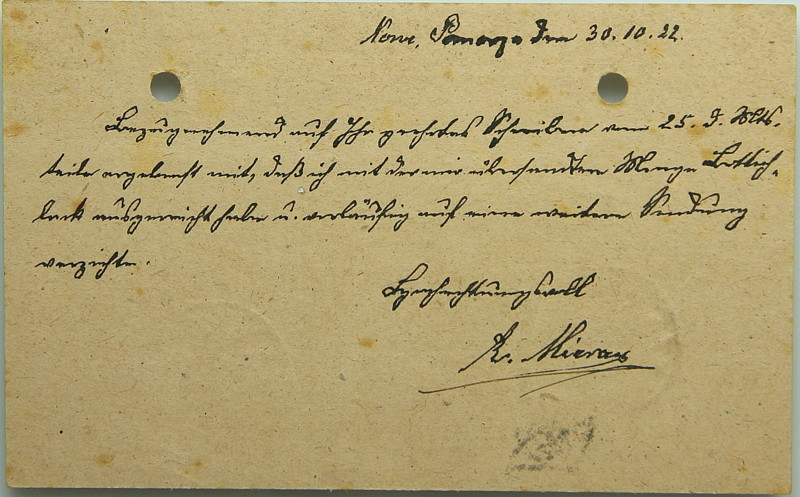 Nowe, Pomorze den 30.10.22.
Bezugnehmend auf Ihr geehrtes Schreiben vom 25. d. Mts.
teile ergebenst mit, daß ich mit der mir übersandten Menge Bottich-
lack ausgereicht habe u. vorläufig auf eine weitere Sendung
verzichte.
Hochachtungsvoll